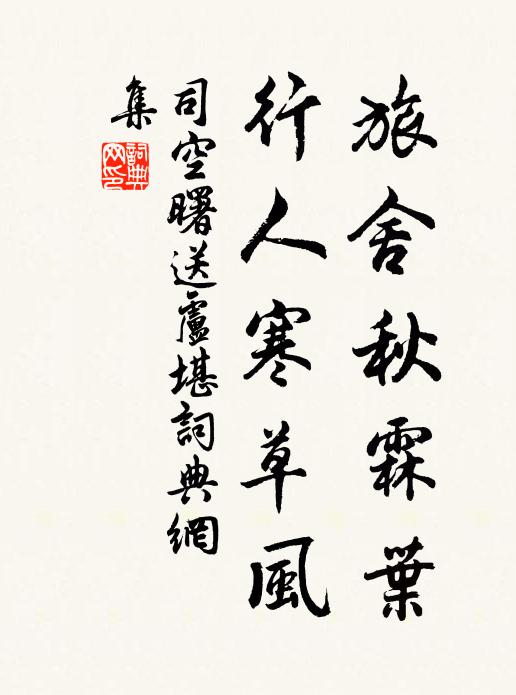 旅舍秋霖葉
行人寒草風
司空曙送盧堪詞典網
集
詞典
网印